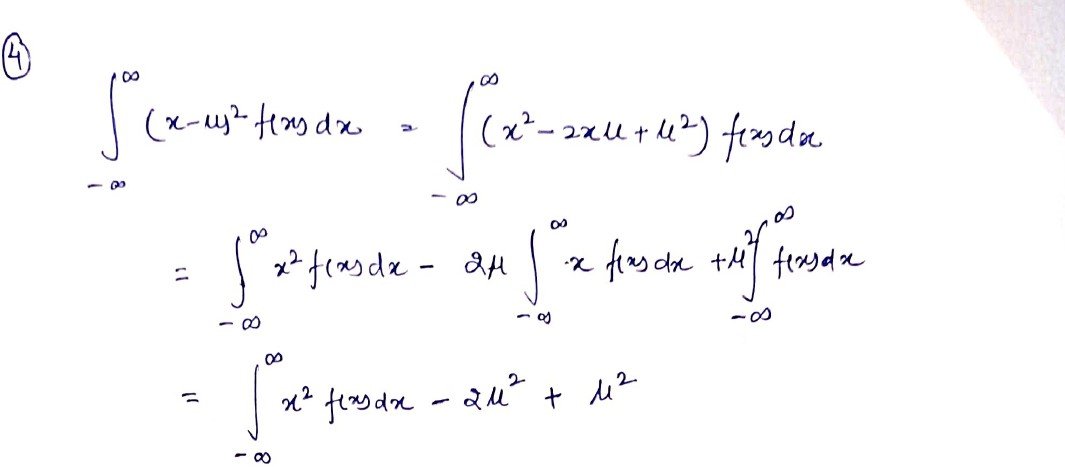 ④
∫_{-∞}^{∞} (x-μ)² f(x) dx = ∫_{-∞}^{∞} (x² - 2xμ + μ²) f(x) dx
= ∫_{-∞}^{∞} x² f(x) dx - 2μ ∫_{-∞}^{∞} x f(x) dx + μ² ∫_{-∞}^{∞} f(x) dx
= ∫_{-∞}^{∞} x² f(x) dx - 2μ² + μ²